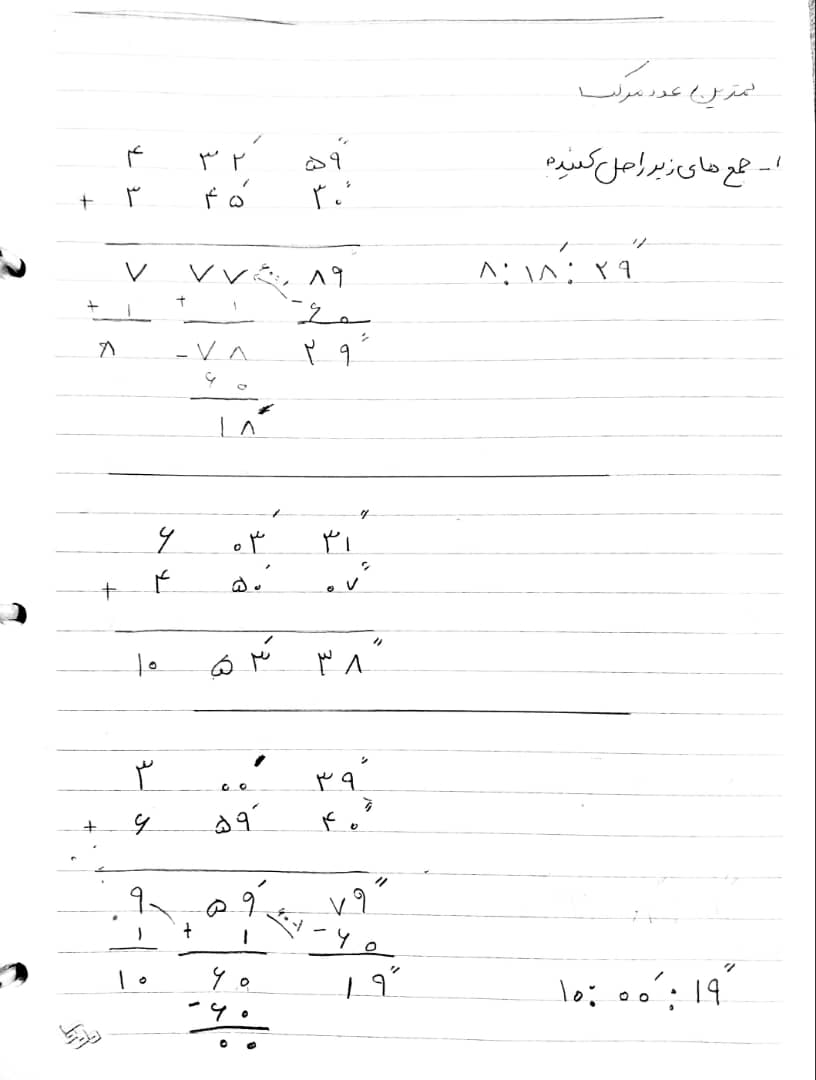 تمرین اعداد مرکب
۱ـ جمع های زیر را حل کنید
۴ ۳۲′ ۵۹″
+ ۳ ۴۵′ ۳۰″
۷ ۷۷ ۸۹
۸:۱۸′:۲۹″
+۱ +۱ -۶۰
۸ -۷۸ ۲۹″
۶۰
۱۸′
۶ ۰۳′ ۳۱″
+ ۴ ۵۰′ ۰۷″
۱۰ ۵۳′ ۳۸″
۳ ۰۰′ ۳۹″
+ ۶ ۵۹′ ۴۰″
۹ ۵۹′ ۷۹″
۱ +۱ -۶۰
۱۰ ۶۰ ۱۹″
۱۰:۰۰′:۱۹″
-۶۰
۰۰